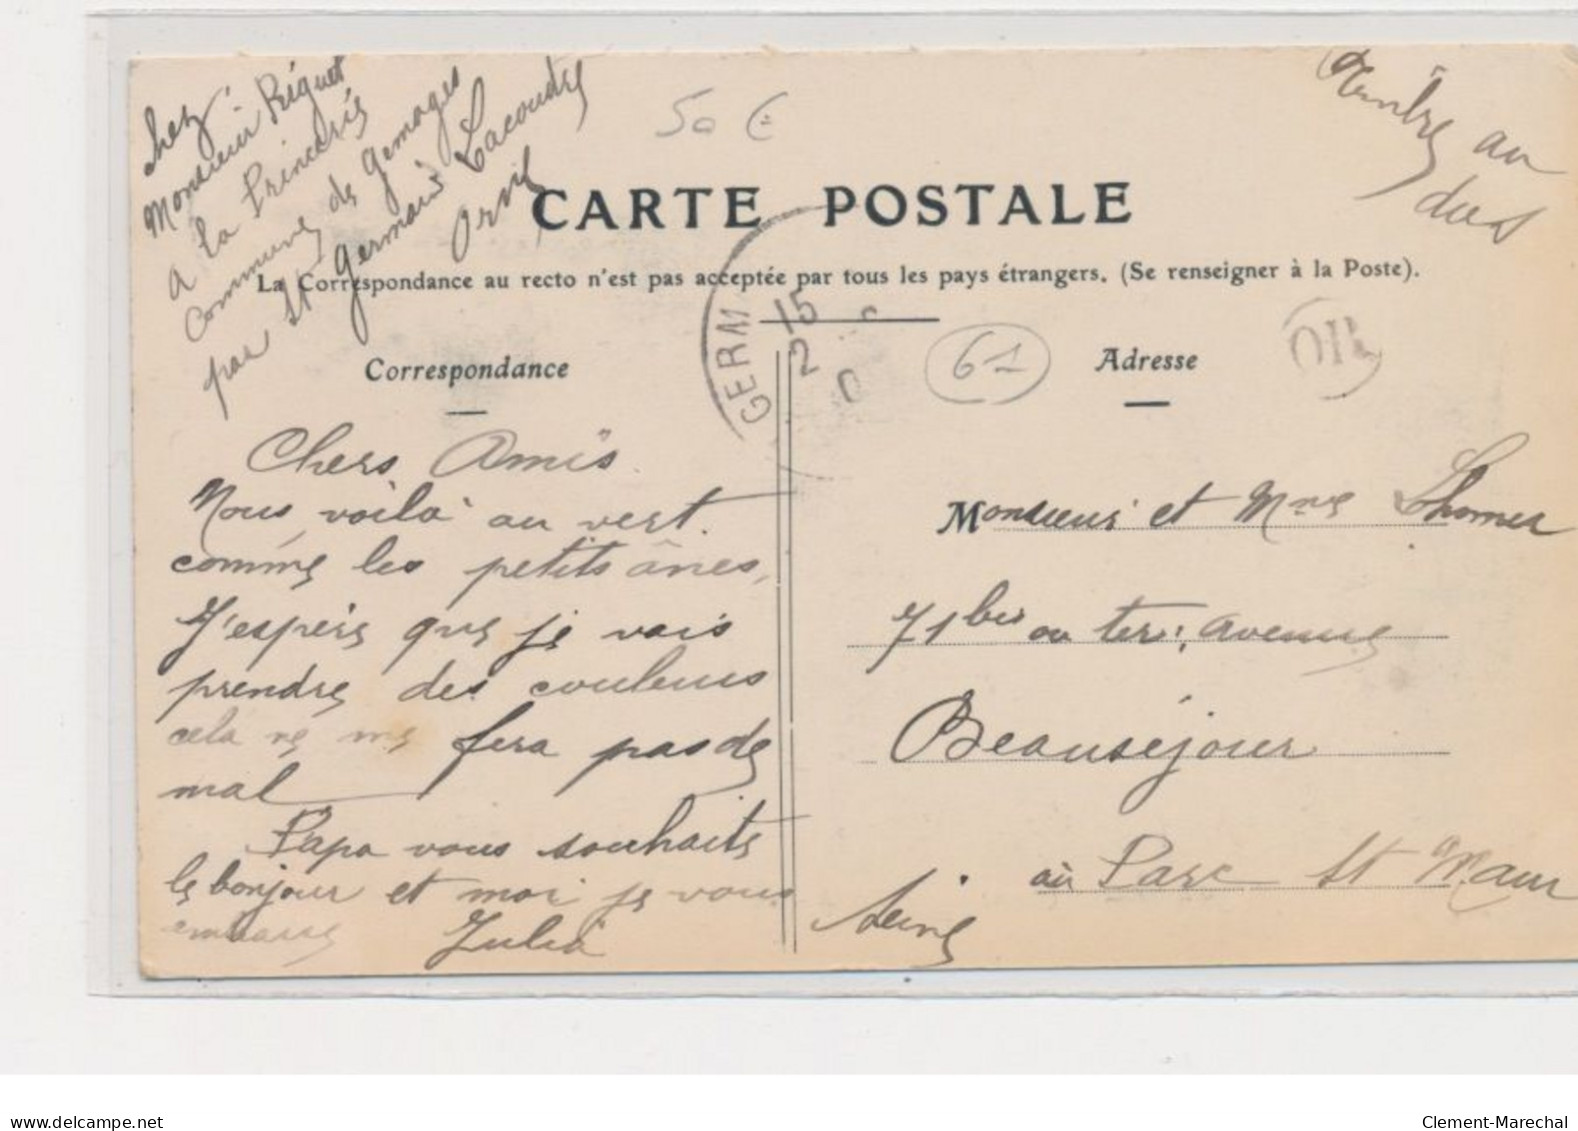 Chez
Monsieur Réguet
a la Princeris
Commune de Gemages
par St Germain Lacoudre
Orne
50 €
Timbre au
dos
CARTE POSTALE
La Correspondance au recto n'est pas acceptée par tous les pays étrangers. (Se renseigner à la Poste).
GERM
15
2
61
OR
Correspondance
Adresse
Chers Amis
Nous voilà au vert
comme les petits ânes,
J'espère que je vais
prendre des couleurs
cela ne me fera pas de
mal
Papa vous souhaite
le bonjour et moi je vous
embrasse Julia
Monsieur et Mme Lhomer
71 bis ou ter, avenue
Beauséjour
au Parc St Maur
Seine
www.delcampe.net
Clement-Marechal